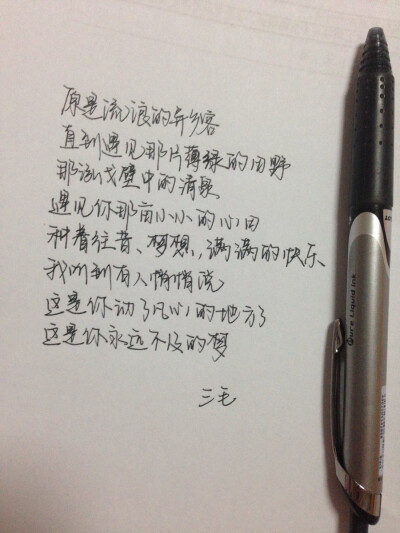 原是流浪的异乡客
直到遇见那片薄绿的田野
那泓戈壁中的清泉
遇见你那亩小小的心田
种着往昔、梦想,满满的快乐、
我听到有人悄悄说
这是你动了凡心的地方了
这是你永远不及的梦
三毛
Liquid ink